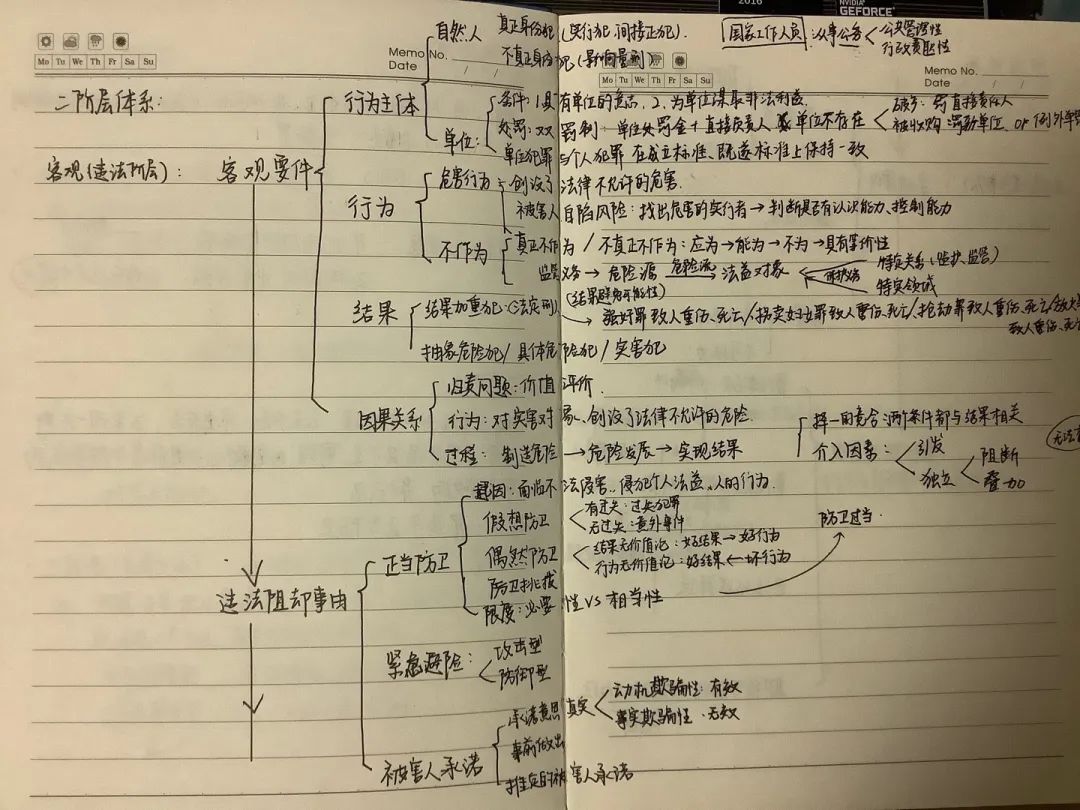 2016
NVIDIA
GEFORCE
Memo No.
Date / /
Mo Tu We Th Fr Sa Su
Memo No.
Date / /
Mo Tu We Th Fr Sa Su
二阶层体系:
客观(违法阶层): 客观要件
行为主体
自然人
真正身份犯(实行犯,间接正犯).
不真正身份犯(影响量刑)
国家工作人员:从事公务
公共管理性
行政责职性
单位:
条件:1.具有单位的意志.2.为单位谋取非法利益.
处罚:双罚制:单位处罚金+直接负责人.
单位不存在
破产:罚直接责任人
单位犯罪与个人犯罪 在成立标准、既遂标准上保持一致
行为
危害行为:创设了法律不允许的危害.
被害人自陷风险:找出危害的实行者→判断是否有认识能力、控制能力
不作为
真正不作为/不真正不作为:应为→能为→不为→具有等价性
监管义务→危险源 危险流 法益对象 保护义务
特定关系(监护、监管)
特定领域
(结果避免可能性)
结果
结果加重犯:(法定刑)
强奸罪致人重伤、死亡/拐卖妇女罪致人重伤、死亡/抢劫罪致人重伤、死亡/
致人重伤、死亡
抽象危险犯/具体危险犯/实害犯
因果关系
归责问题:价值评价.
行为:对实害对象、创设了法律不允许的危险.
过程:制造危险→危险发展→实现结果
择一的竞合:两个条件都与结果相关
介入因素:
引发
独立
阻断
叠加
违法阻却事由
正当防卫
起因:面临不法侵害.侵犯个人法益.人的行为.
假想防卫
有过失:过失犯罪
无过失:意外事件
偶然防卫
结果无价值论:好结果→好行为
行为无价值论:好结果←坏行为
防卫挑拨
限度:必要性VS相当性
防卫过当.
紧急避险:
攻击型
防御型
被害人承诺
承诺意思真实
动机欺骗性:有效
事实欺骗性:无效
事前做出
推定的被害人承诺